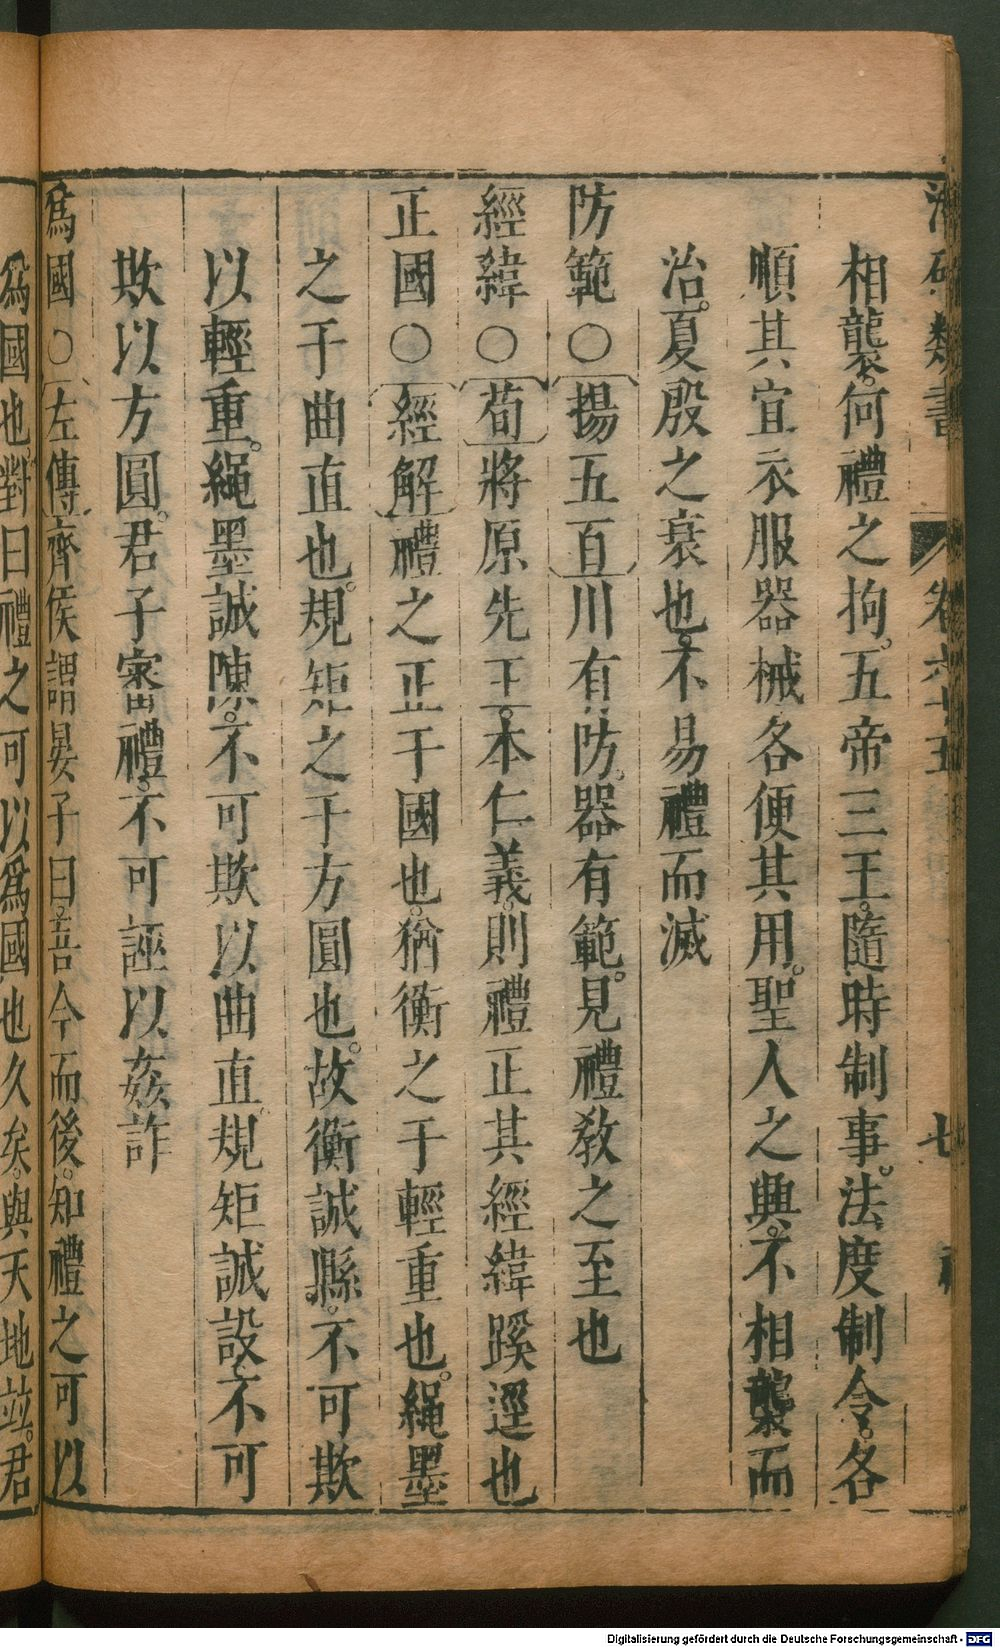 類書 卷六十五 七
相襲何禮之拘。五帝三王。隨時制事。法度制令。各
順其宜衣服器械各便其用。聖人之興。不相襲而
治。夏殷之衰也。不易禮而滅
防範○揚五百川有防。器有範。見禮敎之至也
經緯○荀將原先王。本仁義。則禮正其經緯蹊逕也
正國○經解禮之正于國也。猶衡之于輕重也。繩墨
之于曲直也。規矩之于方圓也。故衡誠縣。不可欺
以輕重。繩墨誠陳。不可欺以曲直。規矩誠設。不可
欺以方圓。君子審禮。不可誣以姦詐
爲國○左傳齊侯謂晏子曰。吾今而後。知禮之可以
爲國也。對曰禮之可以爲國也久矣。與天地並。君
Digitalisierung gefördert durch die Deutsche Forschungsgemeinschaft - DFG